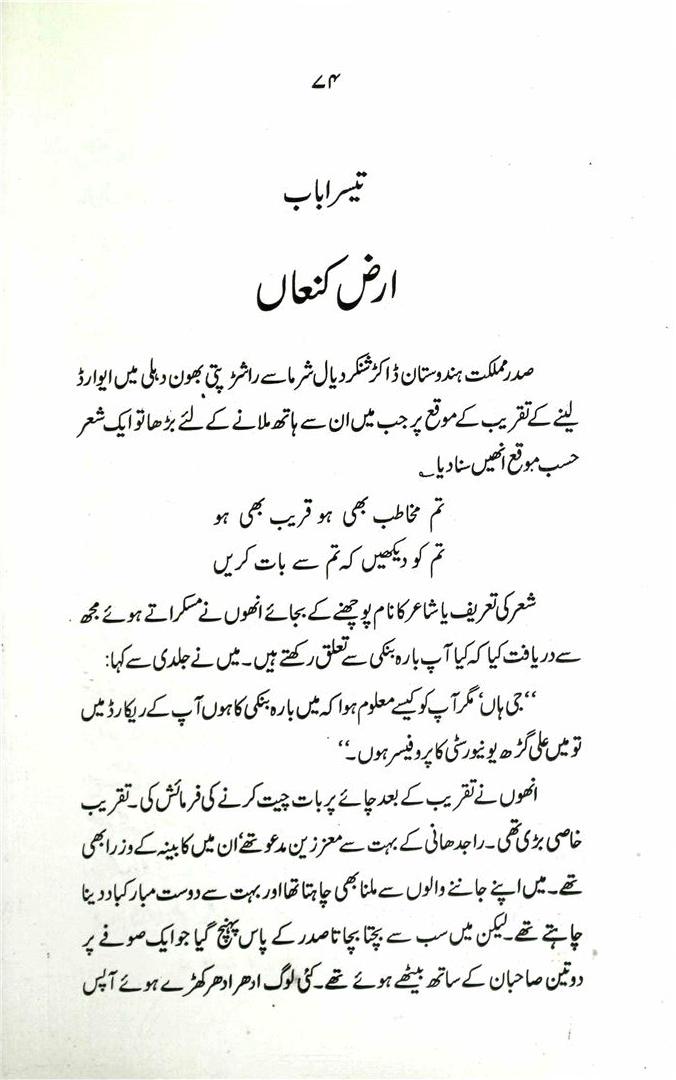 ۷۴
تیسرا باب
ارض کنعاں
صدر مملکت ہندوستان ڈاکٹر شنکر دیال شرما سے راشٹر پتی بھون دہلی میں ایوارڈ
لینے کے تقریب کے موقع پر جب میں ان سے ہاتھ ملانے کے لئے بڑھا تو ایک شعر
حسب موقع انھیں سنا دیا؎
تم مخاطب بھی ہو قریب بھی ہو
تم کو دیکھیں کہ تم سے بات کریں
شعر کی تعریف یا شاعر کا نام پوچھنے کے بجائے انھوں نے مسکراتے ہوئے مجھ
سے دریافت کیا کہ کیا آپ بارہ بنکی سے تعلق رکھتے ہیں۔ میں نے جلدی سے کہا:
‘‘جی ہاں’ مگر آپ کو کیسے معلوم ہوا کہ میں بارہ بنکی کا ہوں آپ کے ریکارڈ میں
تو میں علی گڑھ یونیورسٹی کا پروفیسر ہوں۔’’
انھوں نے تقریب کے بعد چائے پر بات چیت کرنے کی فرمائش کی۔ تقریب
خاصی بڑی تھی۔ راجدھانی کے بہت سے معززین مدعو تھے’ ان میں کابینہ کے وزرا بھی
تھے۔ میں اپنے جاننے والوں سے ملنا بھی چاہتا تھا اور بہت سے دوست مبارکباد دینا
چاہتے تھے۔ لیکن میں سب سے بچتا بچاتا صدر کے پاس پہنچ گیا جو ایک صوفے پر
دو تین صاحبان کے ساتھ بیٹھے ہوئے تھے۔ کئی لوگ ادھر ادھر کھڑے ہوئے آپس